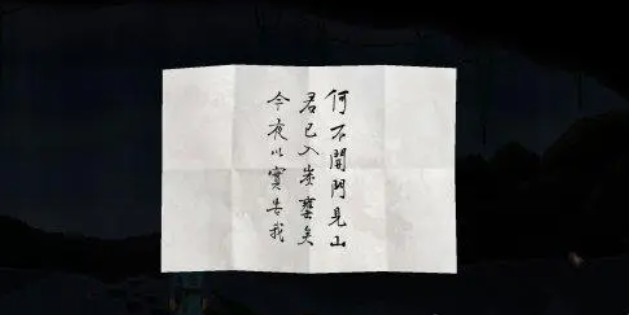 何不開門見山
君已入甕矣
今夜以實告我